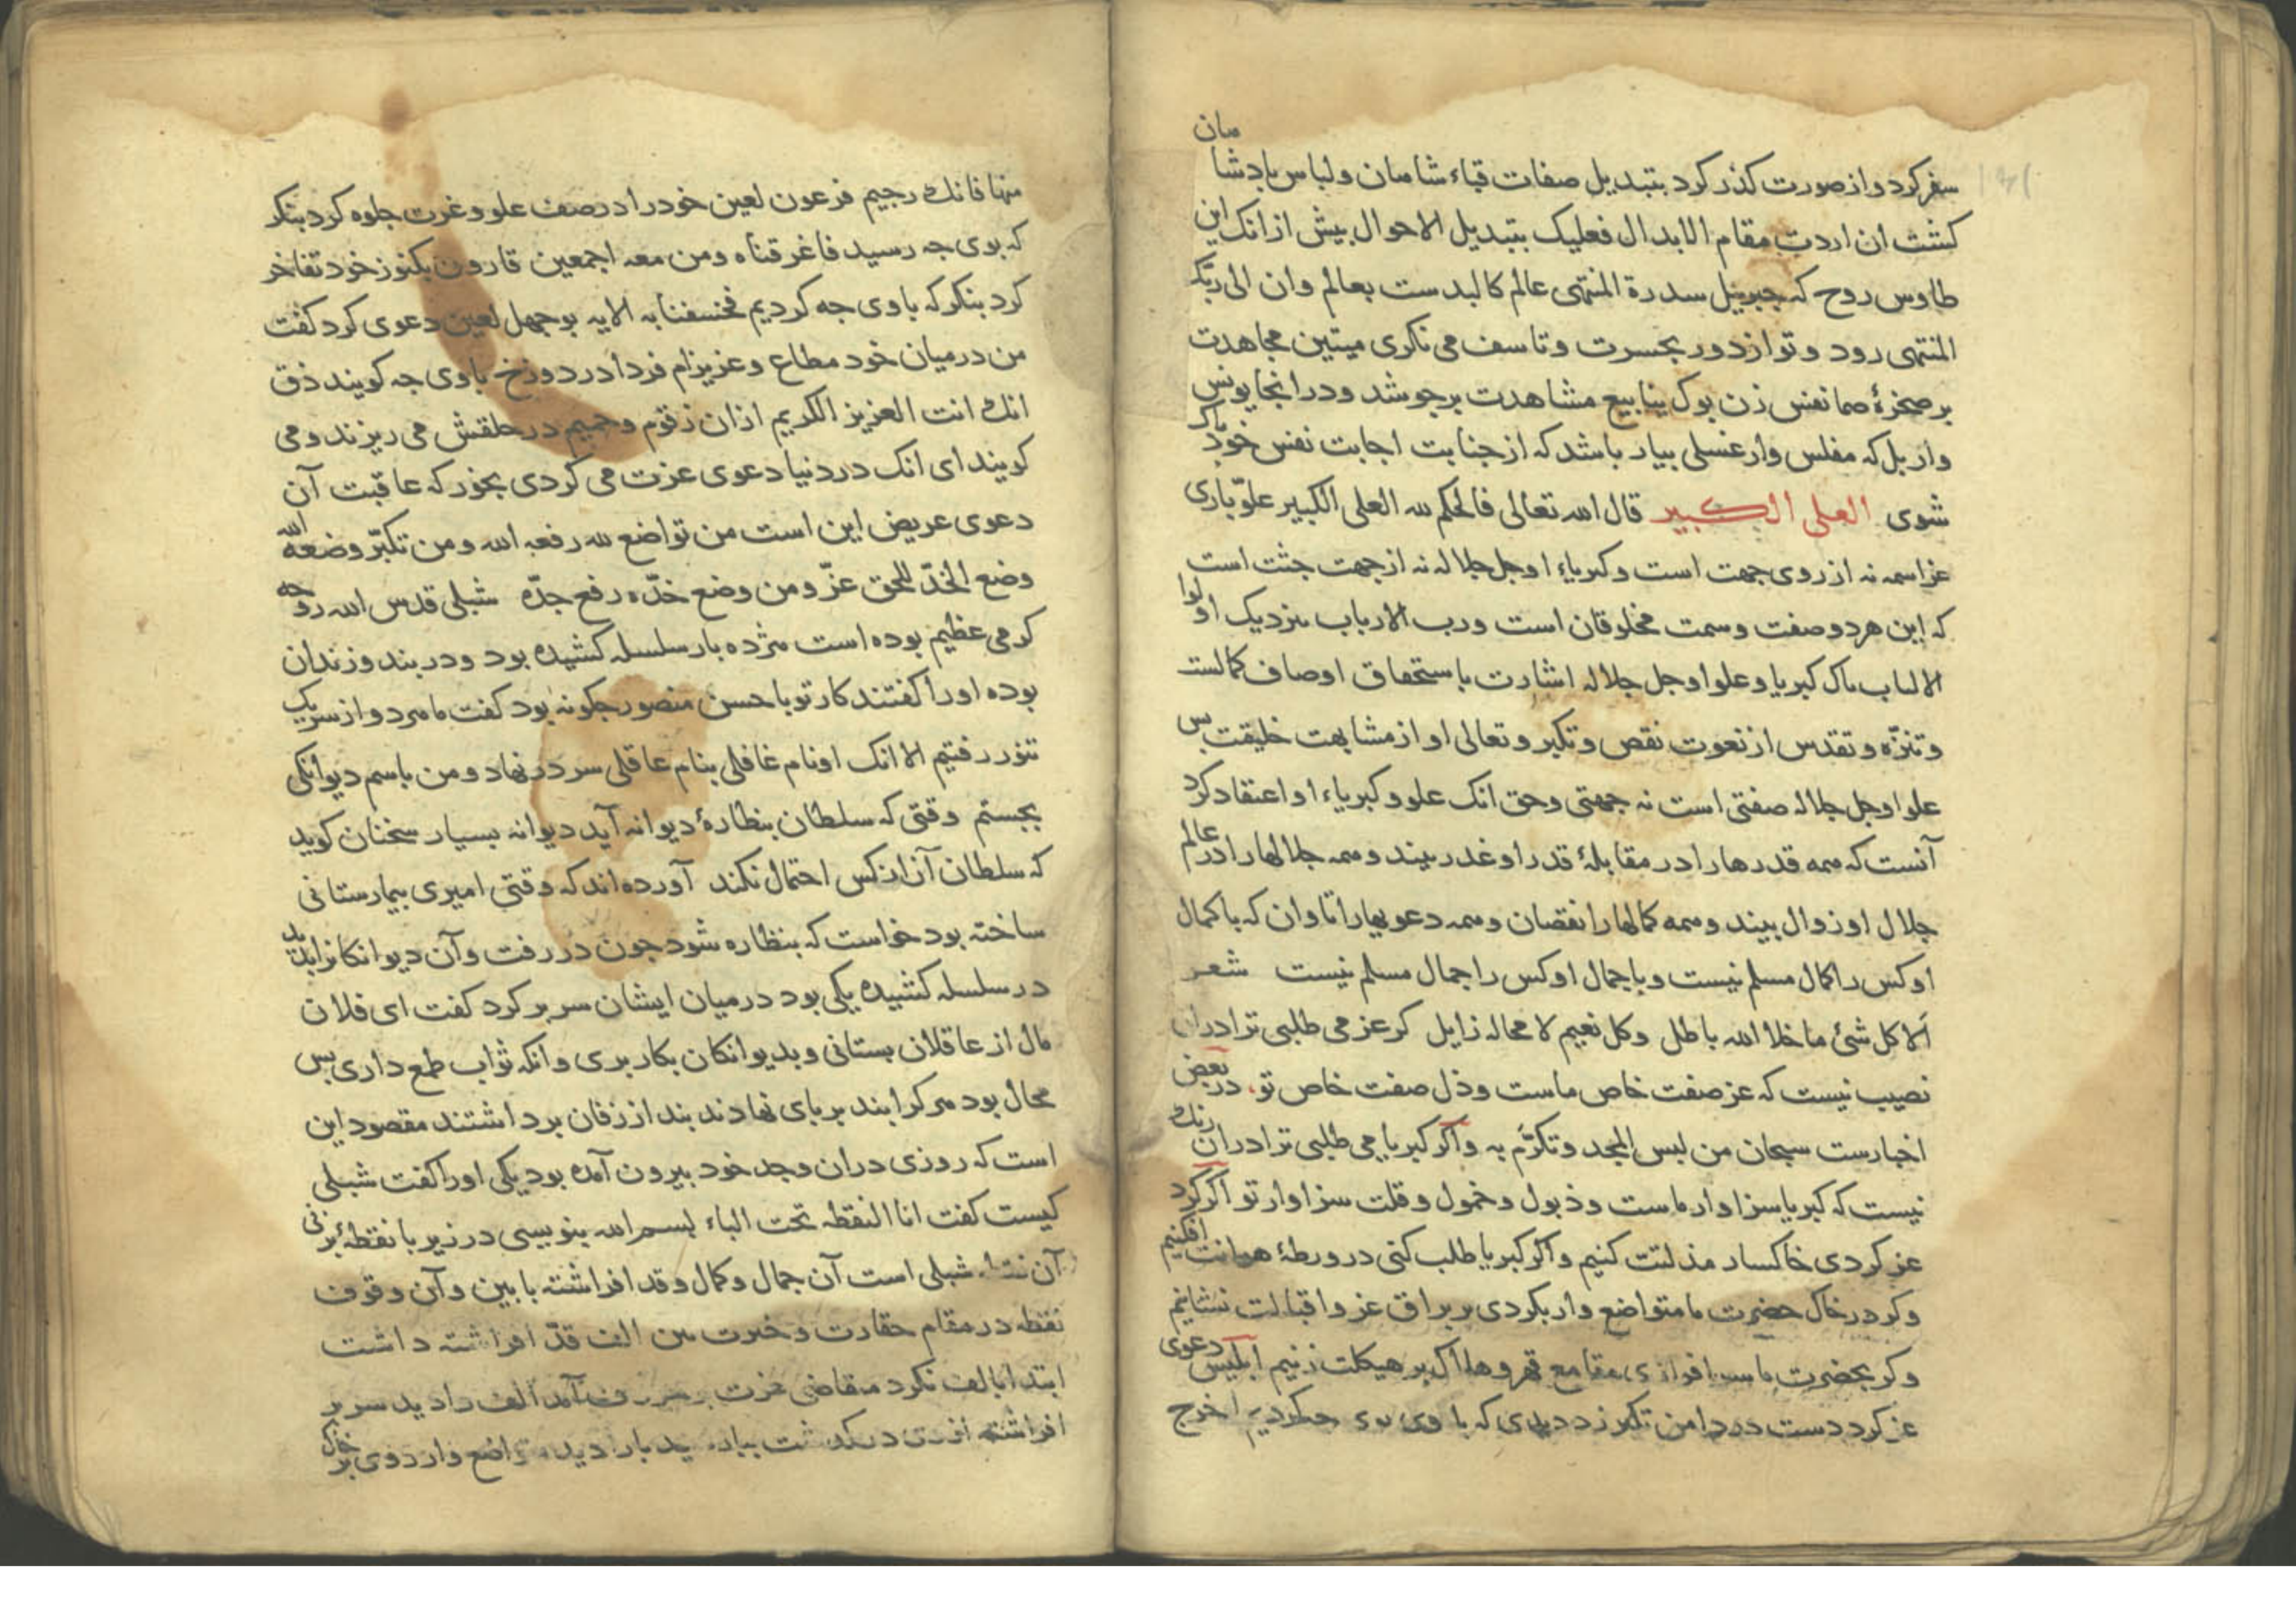 سفر کرد و از صورت کذر کرد بتبدیل صفات قباء شاهان و لباس بادشاهان
کشت ان اردت مقام الابدال فعلیک بتبدیل الاحوال بیش از انک این
طاوس روح که جبرییل سدرة المنتهی عالم کالبدست بعالم وان الی ربک
المنتهی رود و تو از دور بحسرت و تاسف می نکری میتین مجاهدت
بر صخرۀ صما نفس زن بوک ینابیع مشاهدت برجوشد و در انجا یونس
وار بل که مفلس وار غسلی بیار باشد که از جنابت اجابت نفس خود باک
شوی العلی الکبیر قال الله تعالی فالحکم لله العلی الکبیر علوّ باری
عز اسمه نه از روی جهت است و کبریاء او جل جلاله نه از جهت جثت است
که این هر دو صفت و سمت مخلوقان است و رب الارباب نزدیک اولوا
الالباب باک کبریا و علو او جل جلاله اشارت باستحقاق اوصاف کمالست
و تنزّه و تقدس از نعوت نقص و تکبر و تعالی او از مشابهت خلیقت بس
علو او جل جلاله صفتی است نه جهتی و حق انک علو و کبریاء او اعتقاد کرد
آنست که همه قدرها را در مقابلۀ قدر او غدر بیند و همه جلالها را در عالم
جلال او زوال بیند و همه کمالها را نقصان و همه دعویها را تاوان که با کمال
او کس را کمال مسلم نیست و با جمال او کس را جمال مسلم نیست شعر
ألا کل شئ ما خلا الله باطل وکل نعیم لا محاله زایل کر عز می طلبی ترا دران
نصیب نیست که عز صفت خاص ماست و ذل صفت خاص تو، در بعض
اخبارست سبحان من لبس المجد وتکرّم به و اکر کبریا می طلبی ترا دران رنک
نیست که کبریا سزاوار ماست و ذبول و خمول و قلت سزاوار تو اکر کرد
عز کردی خاکسار مذلتت کنیم و اکر کبریا طلب کنی در ورطۀ هوانت افکنیم
و کر در خاک حضرت ما متواضع وار بکردی بر براق عز و اقبالت نشانیم
و کر بحضرت ما سرافرازی مقامع قهر و هلاک بر هیکلت زنیم ابلیس دعوی
عز کرد دست در دامن تکبر زد دیدی که با وی جه کردیم اخرج
منها فانک رجیم فرعون لعین خود را در صف علو و عزت جلوه کرد بنکر
که بوی جه رسید فاغرقناه ومن معه اجمعین قارون بکنوز خود تفاخر
کرد بنکر که با وی جه کردیم فخسفنا به الایه بوجهل لعین دعوی کرد کفت
من درمیان خود مطاع و عزیزام فردا در دوزخ با وی جه کویند ذق
انک انت العزیز الکریم ازان زقوم و حمیم در حلقش می ریزند و می
کویند ای انک در دنیا دعوی عزت می کردی بخور که عاقبت آن
دعوی عریض این است من تواضع لله رفعه الله ومن تکبّر وضعه الله
وضع الخدّ للحق عزّ ومن وضع خدّه رفع جدّه شبلی قدس الله روحه
کرمی عظیم بوده است هژده بار سلسله کشیده بود و در بند و زندان
بوده او را کفتند کار تو با حسن منصور جکونه بود کفت ما هر دو از سر یک
تنور رفتیم الا انک او نام غافلی بنام عاقلی سر در نهاد و من باسم دیوانکی
بجستم وقتی که سلطان بنظارۀ دیوانه آید دیوانه بسیار سخنان کوید
که سلطان آن از کس احتمال نکند آورده اند که وقتی امیری بیمارستانی
ساخته بود خواست که بنظاره شود جون در رفت و آن دیوانکانرا بدید
در سلسله کشیده یکی بود درمیان ایشان سر بر کرد کفت ای فلان
مال از عاقلان بستانی و بدیوانکان بکار بری و انکه ثواب طمع داری بس
محال بود هر کرا بند بر بای نهادند بند از زفان برداشتند مقصود این
است که روزی دران وجد خود بیرون آمده بود یکی او را کفت شبلی
کیست کفت انا النقطه تحت الباء بسم الله بنویسی در زیر با نقطۀ بر زنی
آن شبلی است آن جمال و کمال و قد افراشته با بین و آن وقوف
نقطه در مقام حقارت و خبرت بین الف قدّ افراشته داشت
ابتدا بالف نکرد متقاضی عزت آمد الف را دید سر بر
افراشته ازو در کذشت بیا رسید با را دید متواضع وار روی بر خاک